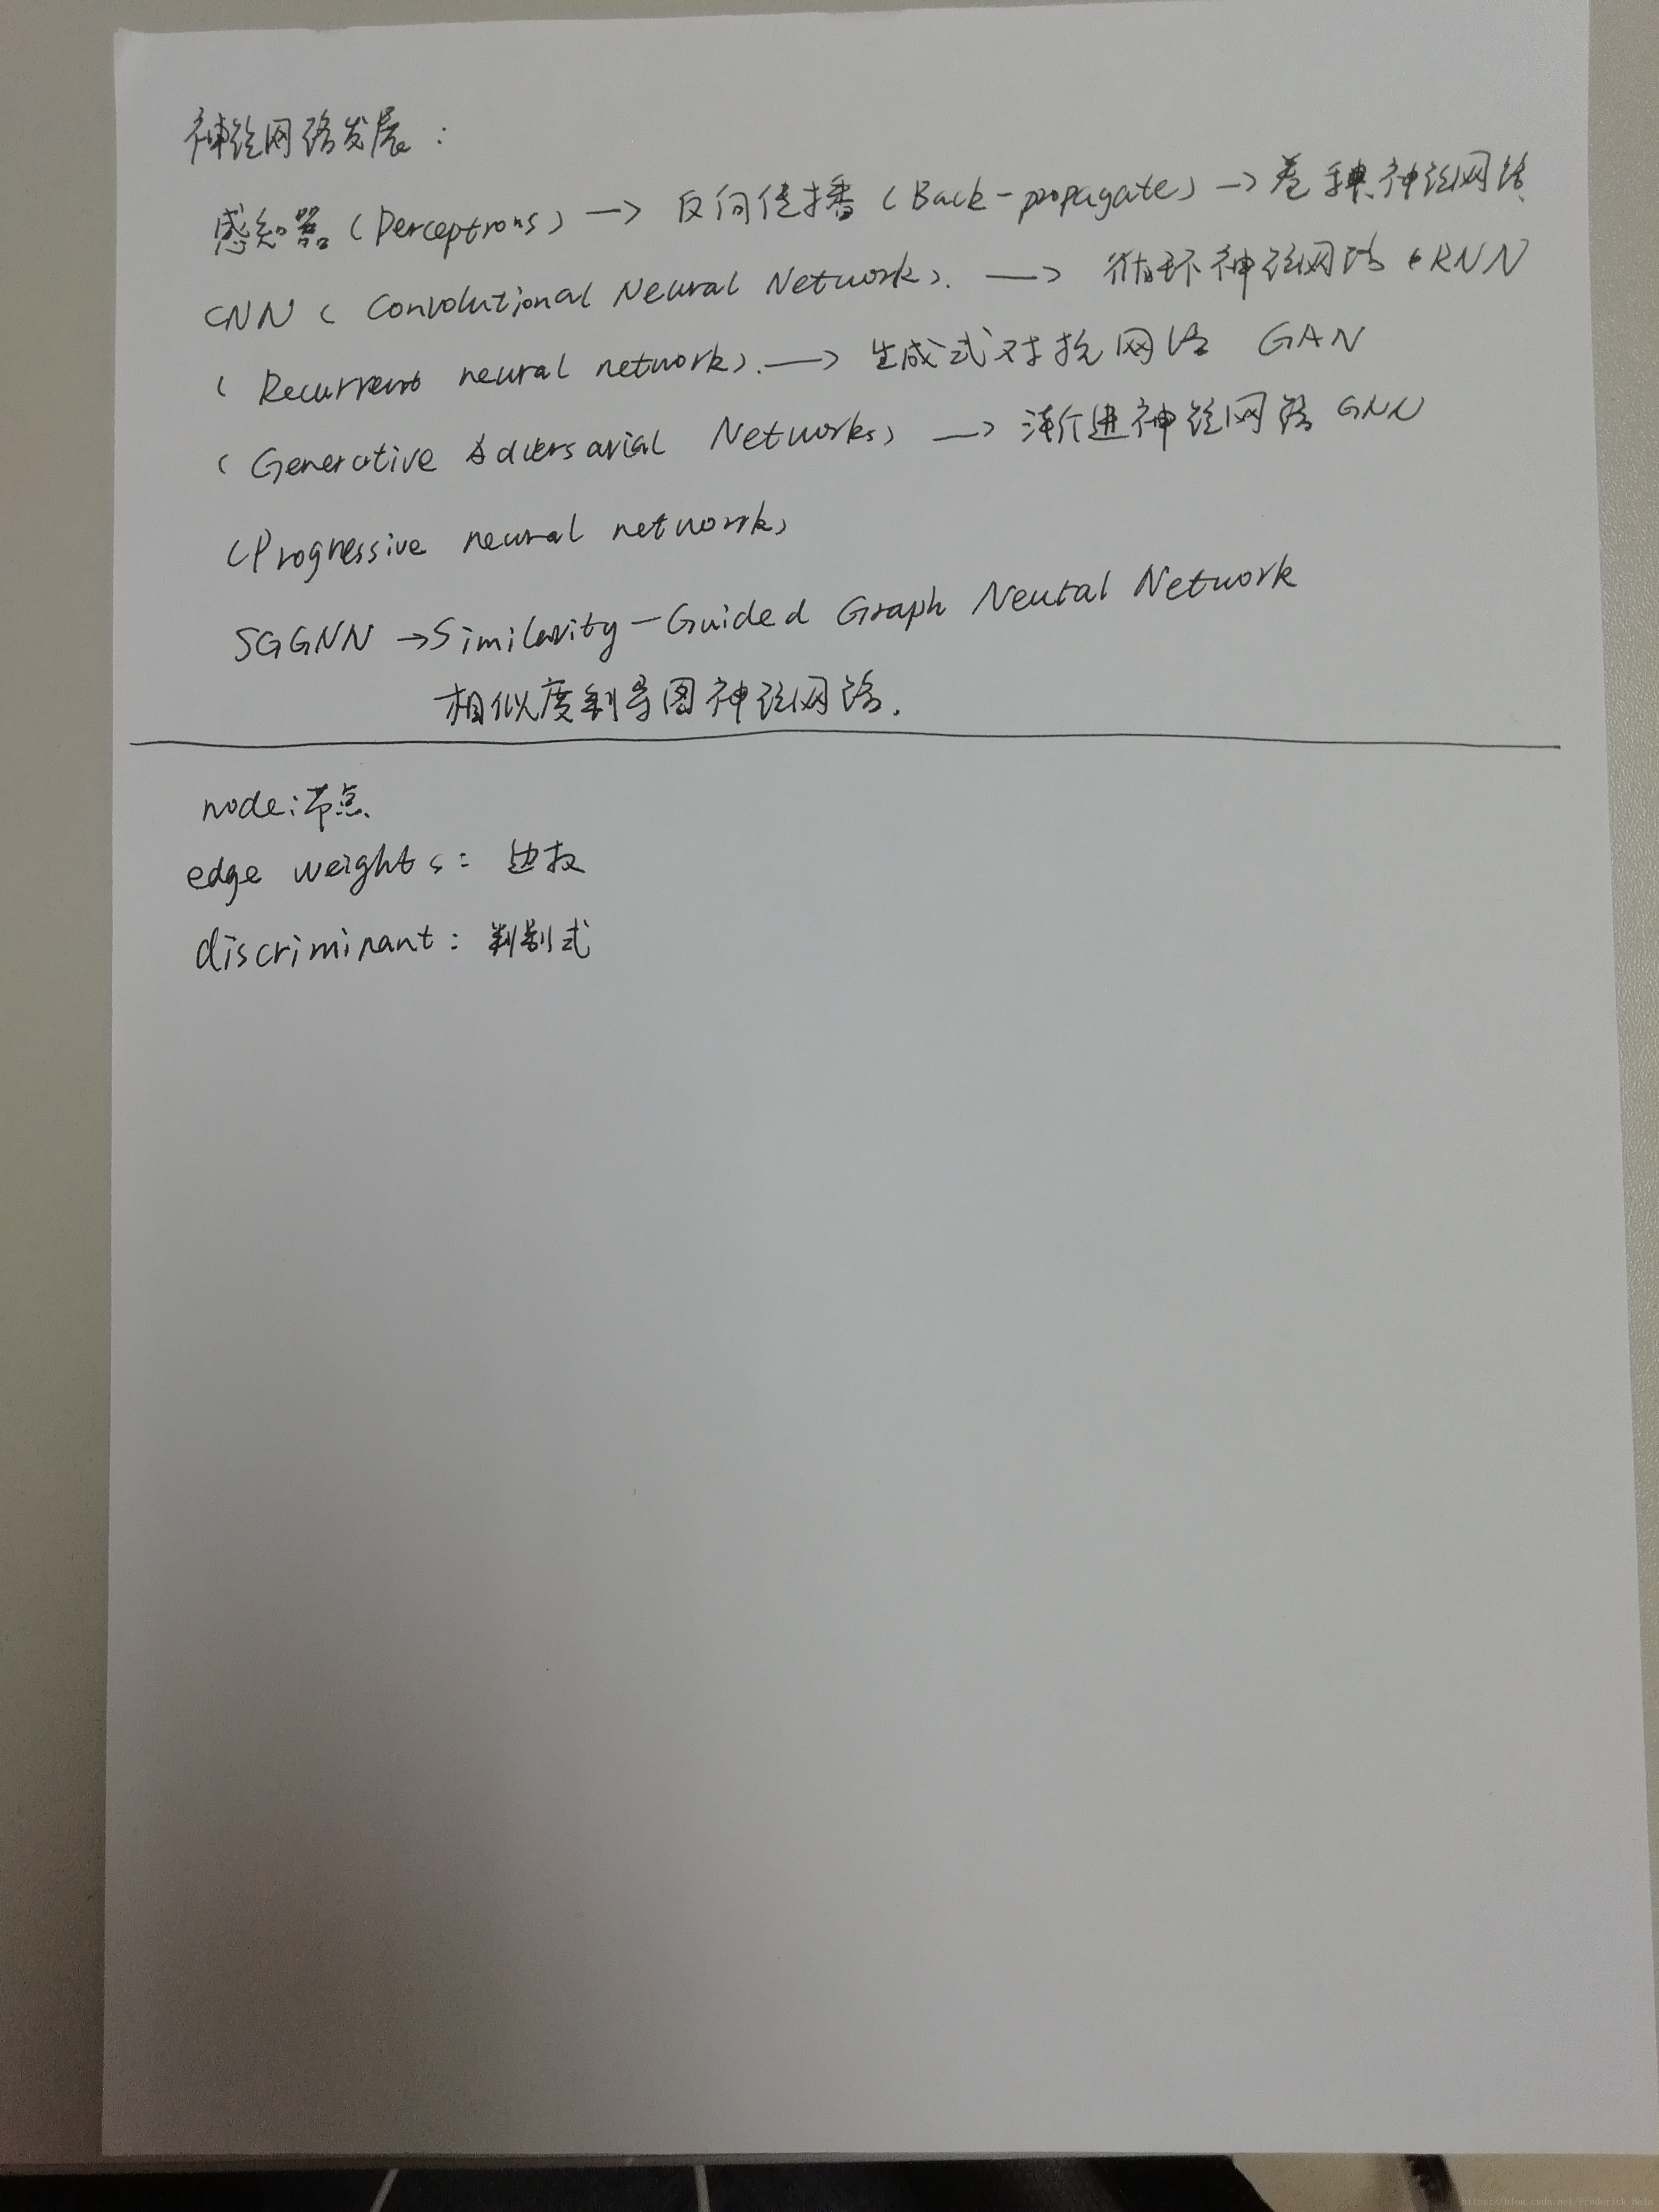 神经网络发展：
感知器(Perceptrons) —> 反向传播(Back-propagate) —> 卷积神经网络
CNN ( Convolutional Neural Network). —> 循环神经网络 RNN
( Recurrent neural network). —> 生成式对抗网络 GAN
( Generative Adversarial Networks) —> 渐进神经网络 GNN
(Progressive neural network)
SGGNN →Similarity-Guided Graph Neural Network
相似度制导图神经网络.
node:节点
edge weights: 边权
discriminant: 判别式
https://blog.csdn.net/Frederick_Bala